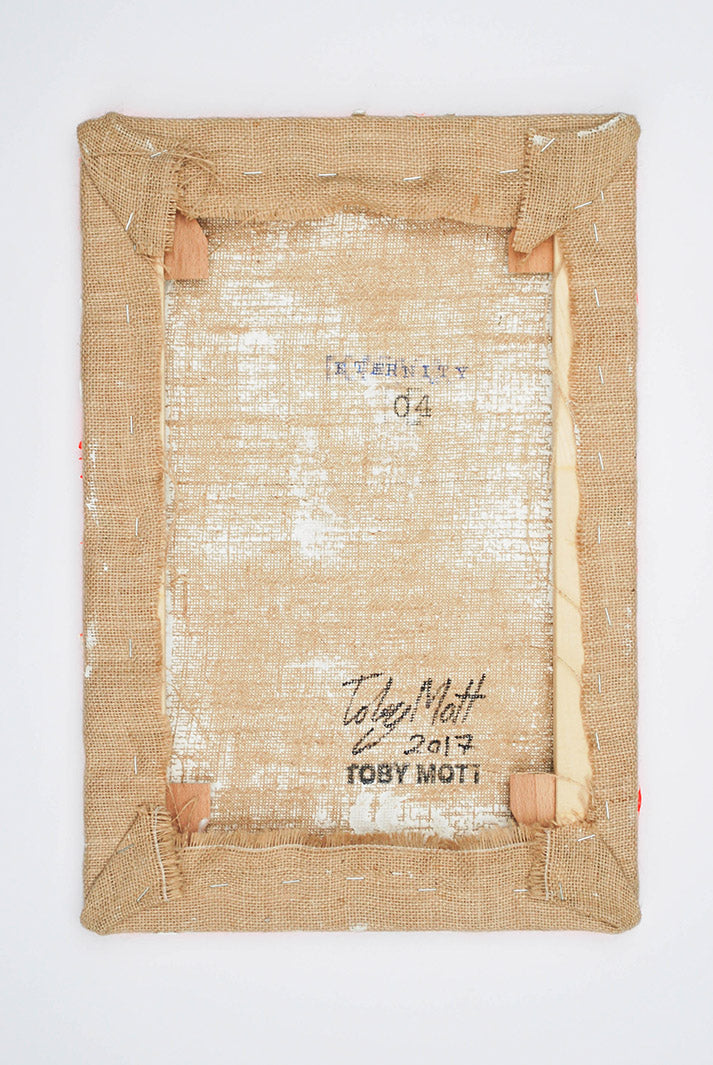 ETERNITY
04
Toby Mott
2017
TOBY MOTT